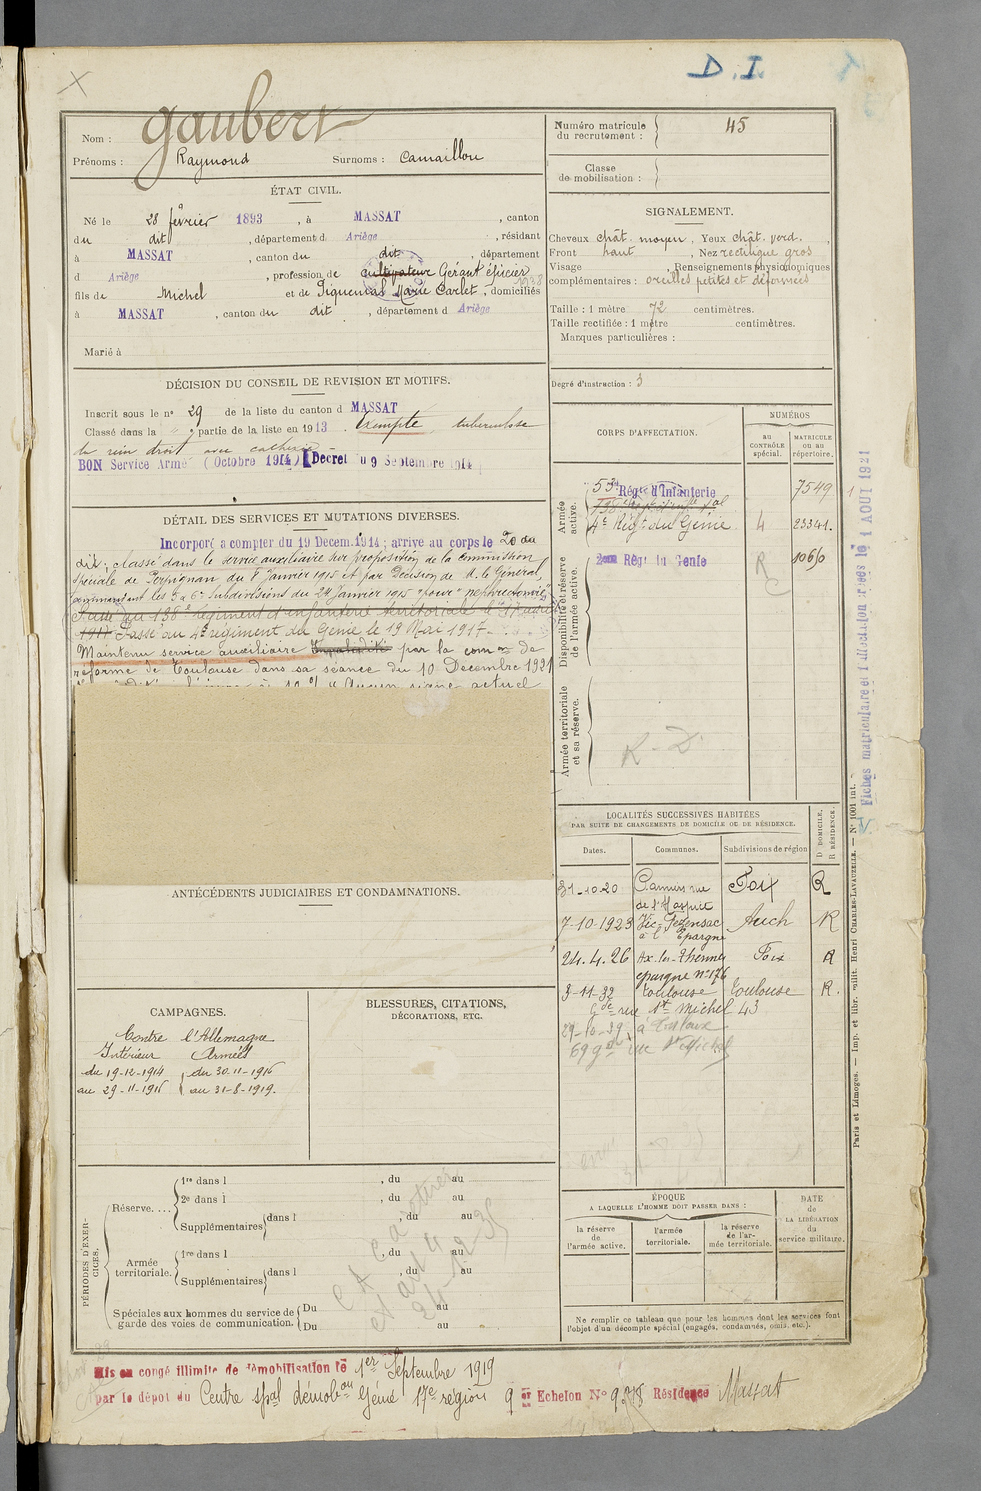 D. I.
Nom : Gaubert
Prénoms : Raymond Surnoms : Camaillou
Numéro matricule du recrutement : 45
Classe de mobilisation :
ÉTAT CIVIL.
Né le 28 février 1893, à MASSAT, canton
du dit, département d Ariège, résidant
à MASSAT, canton du dit, département
d Ariège, profession de cultivateur Gérant épicier 1938
fils de Michel et de Piquemal Marie Carlet, domiciliés
à MASSAT, canton du dit, département d Ariège
Marié à
SIGNALEMENT.
Cheveux chât. moyen, Yeux chât. verd.,
Front haut, Nez rectiligne gros
Visage , Renseignements physionomiques
complémentaires : oreilles petites et déformées
Taille : 1 mètre 72 centimètres.
Taille rectifiée : 1 mètre centimètres.
Marques particulières :
Degré d'instruction : 3
DÉCISION DU CONSEIL DE REVISION ET MOTIFS.
Inscrit sous le n° 29 de la liste du canton d MASSAT
Classé dans la " " partie de la liste en 1913. Exempté tuberculose
du rein droit avec cachexie
BON Service Armé (Octobre 1914) Décret du 9 Septembre 1914
DÉTAIL DES SERVICES ET MUTATIONS DIVERSES.
Incorporé à compter du 19 Décem. 1914 ; arrivé au corps le 20 du
dit ; classé dans le service auxiliaire sur proposition de la commission
spéciale de Perpignan du 8 janvier 1915 et par Décision de M. le Général,
commandant les 5 et 6e subdivisions du 24 janvier 1915 "pour" néphrectomie"
Passé au 136e Régiment d'infanterie territoriale le
1917 Passé au 4e régiment du Génie le 19 Mai 1917
Maintenu service auxiliaire par la comon de
réforme de Toulouse dans sa séance du 10 Décembre 1921
Aucun signe actuel
CORPS D'AFFECTATION.
NUMÉROS
au CONTRÔLE spécial.
MATRICULE ou au répertoire.
Armée active.
53e Régt d'Infanterie 7549
4e Régt du Génie 4 23341
Disponibilité et réserve de l'armée active.
2eme Rég. du Génie R 1060
Armée territoriale et sa réserve.
R. D.
Fiches matriculaire et d'affectation créées le 1 AOUT 1921
LOCALITÉS SUCCESSIVES HABITÉES
PAR SUITE DE CHANGEMENTS DE DOMICILE OU DE RÉSIDENCE.
Dates. Communes. Subdivisions de région D DOMICILE. R RÉSIDENCE.
31-10-20 Pamiers rue Foix R
de l'Hospice
7-10-1923 Vic-Fezensac Auch R
à l'Epargne
24.4.26 Ax-les-Thermes Foix R
épargne n° 176
3-11-32 Toulouse Toulouse R.
Gde rue St Michel 43
29-10-39 à Toulouse
69 gde rue St Michel
ANTÉCÉDENTS JUDICIAIRES ET CONDAMNATIONS.
CAMPAGNES.
Contre l'Allemagne
Intérieur Armées
du 19-12-1914 du 30-11-1916
au 29-11-1916 au 31-8-1919.
BLESSURES, CITATIONS,
DÉCORATIONS, ETC.
PÉRIODES D'EXERCICES.
Réserve....
1re dans l , du au
2e dans l , du au
Supplémentaires dans l , du au
Armée territoriale.
1re dans l , du au
Supplémentaires dans l , du au
Spéciales aux hommes du service de garde des voies de communication.
Du au
Du au
ÉPOQUE
A LAQUELLE L'HOMME DOIT PASSER DANS :
la réserve de l'armée active.
l'armée territoriale.
la réserve de l'armée territoriale.
DATE DE LA LIBÉRATION du service militaire.
Ne remplir ce tableau que pour les hommes dont les services font
l'objet d'un décompte spécial (engagés, condamnés, omis, etc.).
Paris et Limoges. — Imp. et libr. milit. Henri CHARLES-LAVAUZELLE. — N° 1001 int.
Mis en congé illimité de démobilisation le 1er Septembre 1919
par le dépôt du Centre spal démobon Génie 17e région 9 Echelon N° 978 Résidence Massat